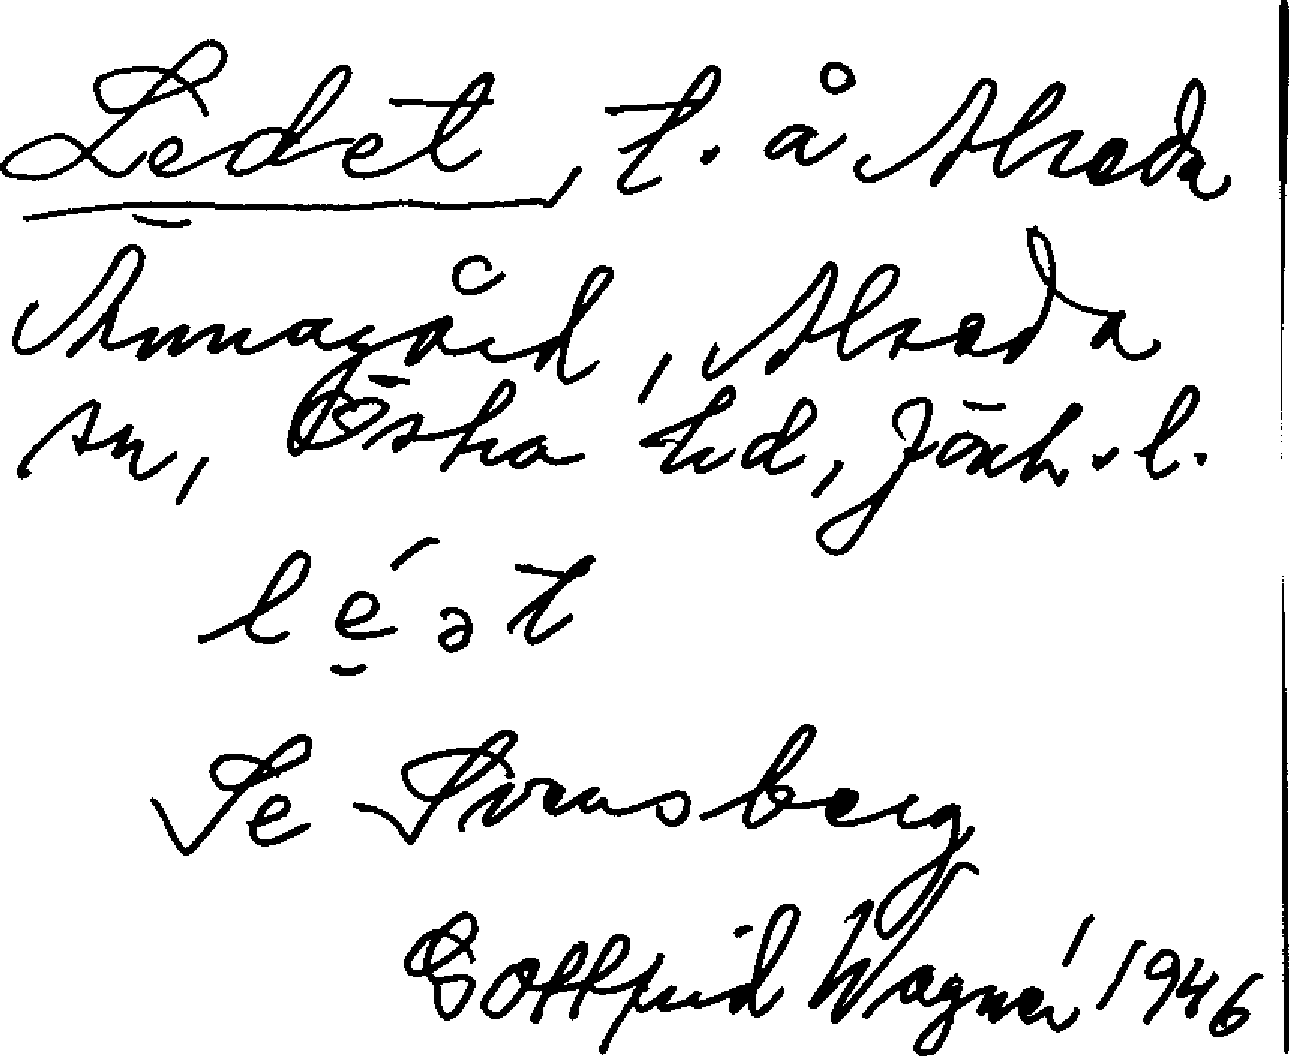 Ledet, t. å Alseda
Ämnagård, Alseda
sn, Östra hd, Jönk.l.
lé̮ət
Se Svensberg
Gottfrid Wagnér 1946